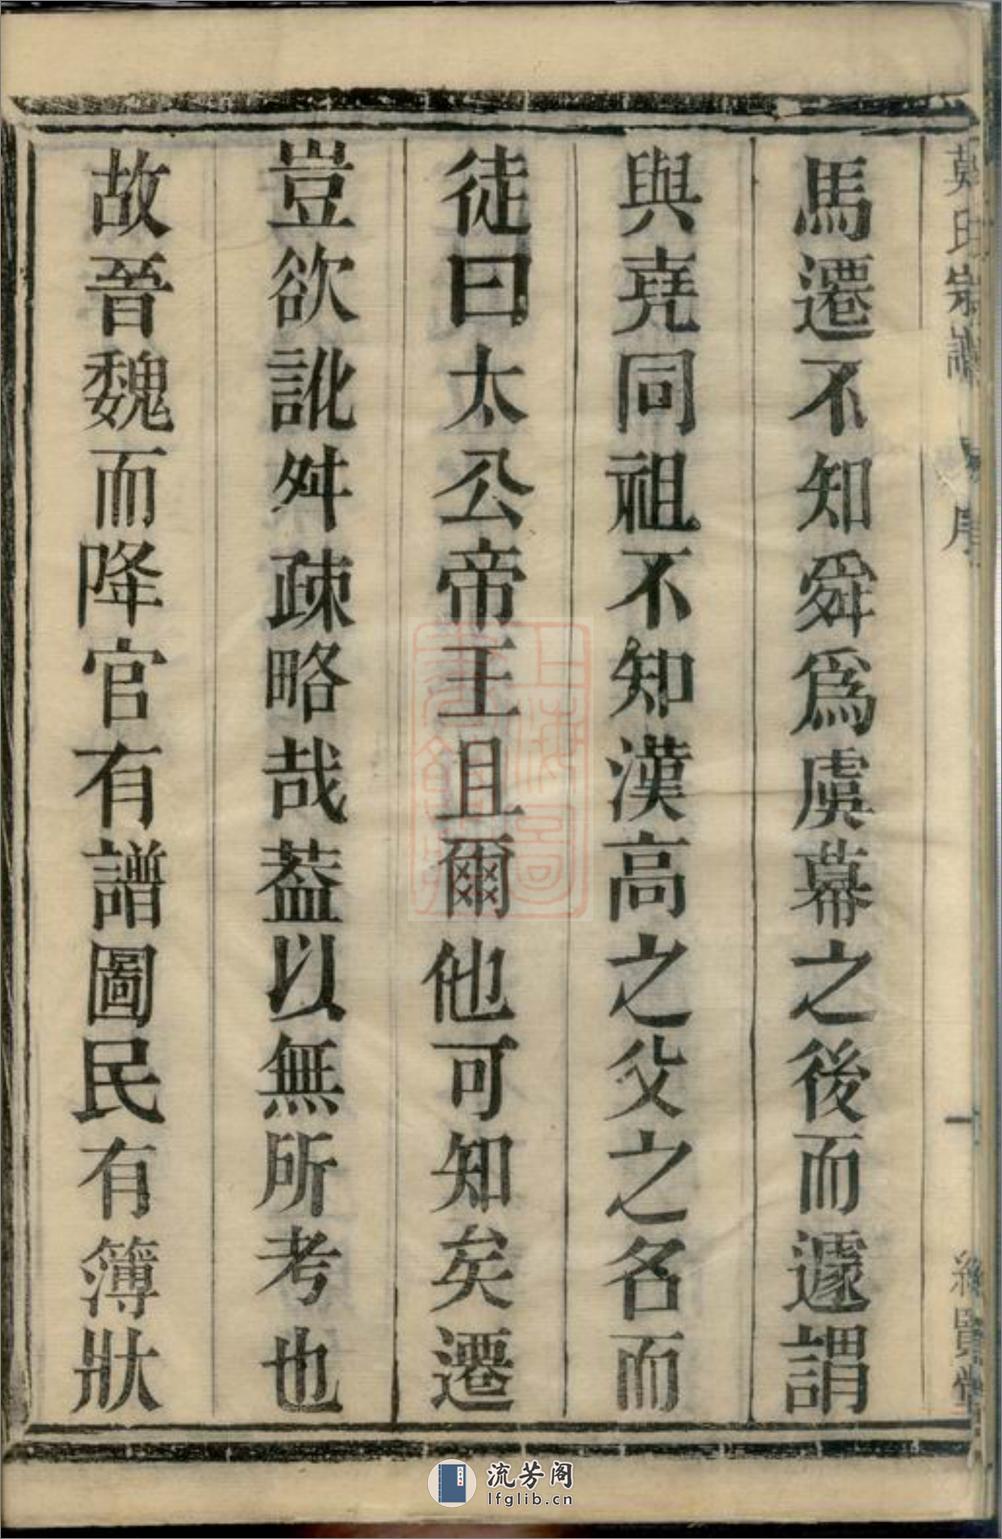 馬遷不知舜為虞幕之後而遽謂
與堯同祖不知漢高之父之名而
徒曰太公帝王且爾他可知矣遷
豈欲訛舛疎略哉葢以無所考也
故晉魏而降官有譜圖民有簿狀
氏宗譜
序
一
賢堂
流芳阁
lfglib.cn